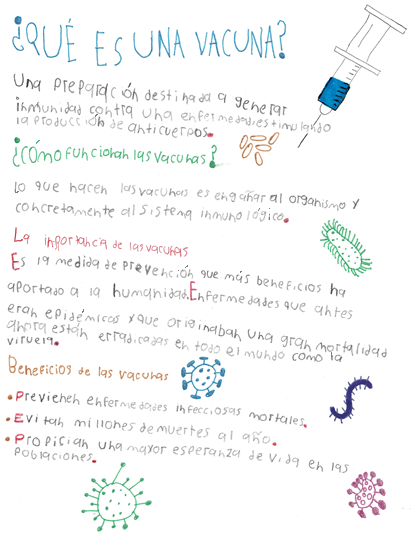 ¿QUÉ ES UNA VACUNA?
Una preparación destinada a generar
inmunidad contra una enfermedad estimulando
la producción de anticuerpos.
¿Cómo funcionan las vacunas?
Lo que hacen las vacunas es engañar al organismo y
concretamente al sistema inmunológico.
La importancia de las vacunas
Es la medida de prevención que más beneficios ha
aportado a la humanidad. Enfermedades que antes
eran epidémicas y que originaban una gran mortalidad
ahora están erradicadas en todo el mundo como la
viruela.
Beneficios de las vacunas
• Previenen enfermedades infecciosas mortales.
• Evitan millones de muertes al año.
• Propician una mayor esperanza de vida en las
poblaciones.